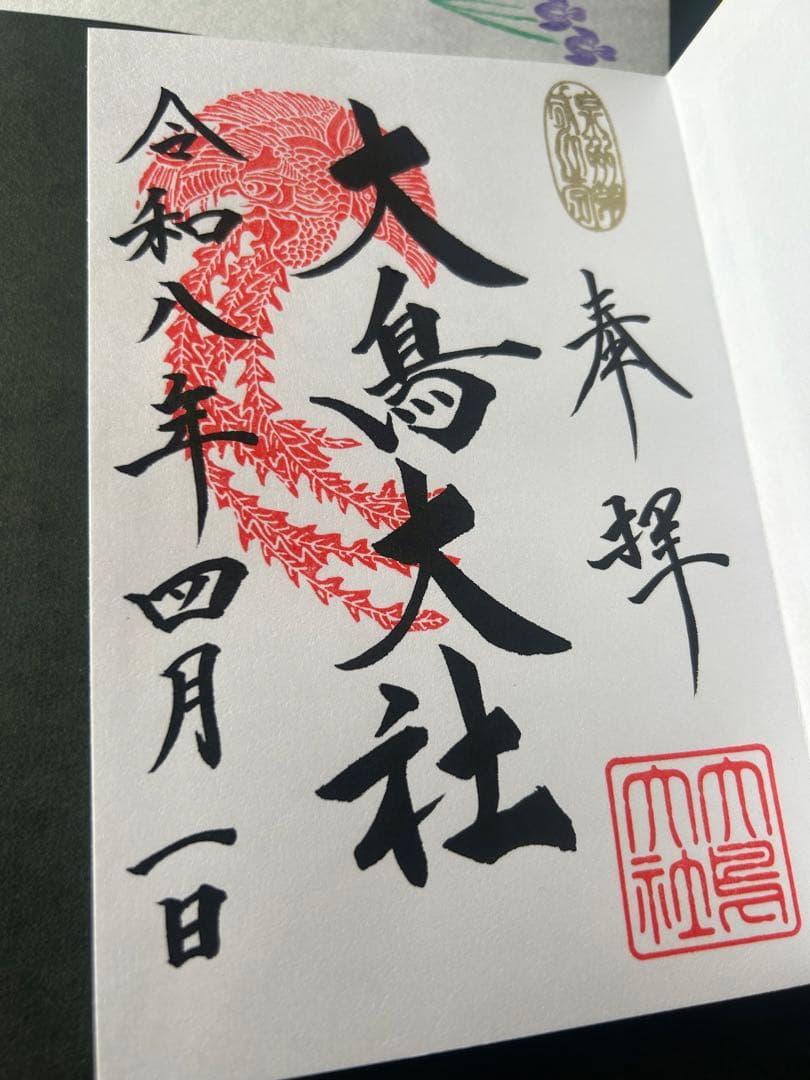 奉拝
大鳥大社
大鳥大社
令和八年四月一日